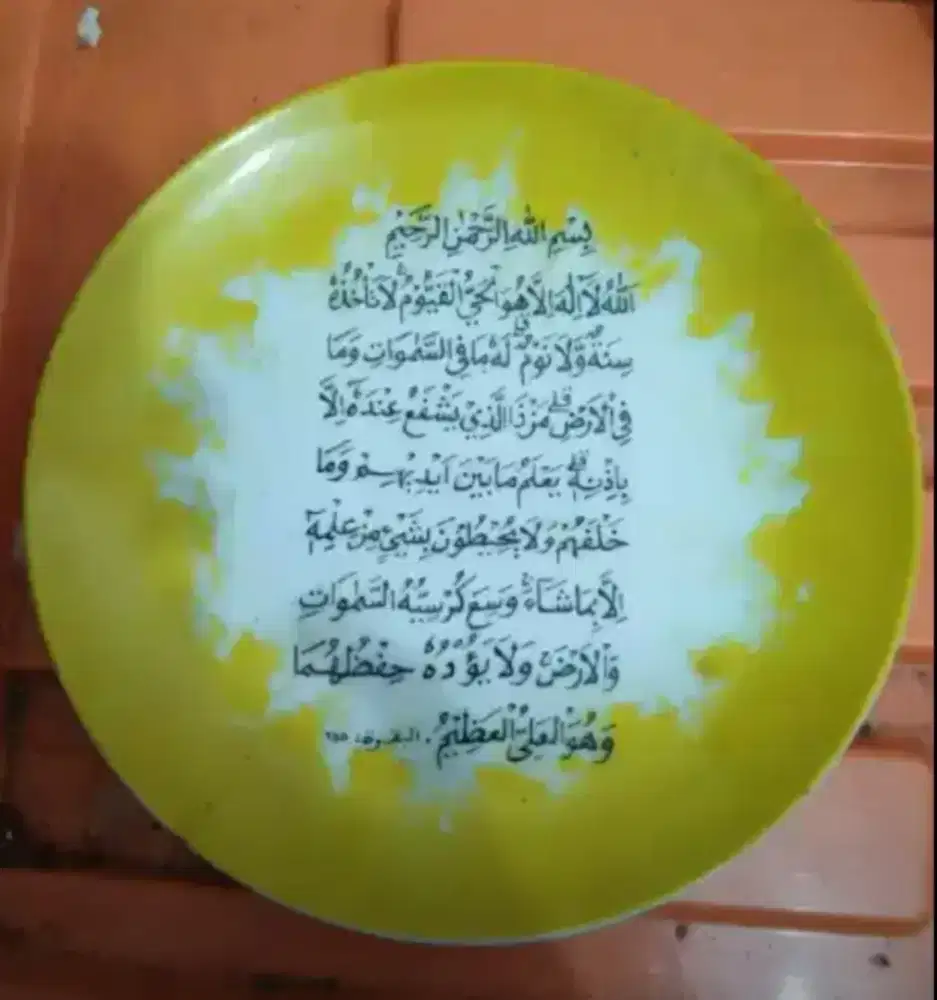 بِسْمِ اللهِ الرَّحْمٰنِ الرَّحِيْمِ
اَللهُ لَآ اِلٰهَ اِلَّا هُوَ الْحَيُّ الْقَيُّوْمُ ۚ لَا تَأْخُذُهٗ
سِنَةٌ وَّلَا نَوْمٌ ۗ لَهٗ مَا فِى السَّمٰوَاتِ وَمَا
فِى الْاَرْضِ ۗ مَنْ ذَا الَّذِيْ يَشْفَعُ عِنْدَهٗٓ اِلَّا
بِاِذْنِهٖ ۗ يَعْلَمُ مَا بَيْنَ اَيْدِيْهِمْ وَمَا
خَلْفَهُمْ وَلَا يُحِيْطُوْنَ بِشَيْءٍ مِنْ عِلْمِهٖٓ
اِلَّا بِمَا شَآءَ ۚ وَسِعَ كُرْسِيُّهُ السَّمٰوَاتِ
وَالْاَرْضَ ۚ وَلَا يَؤُدُهٗ حِفْظُهُمَا
وَهُوَ الْعَلِيُّ الْعَظِيْمُ. البقرة: ٢٥٥